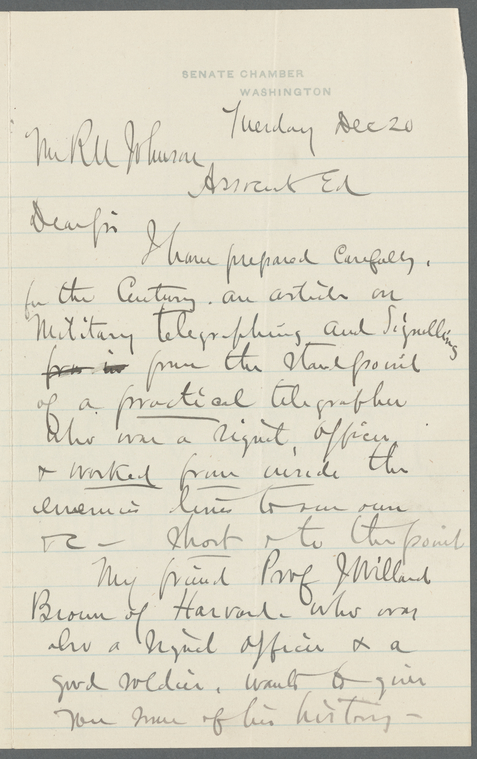 SENATE CHAMBER
WASHINGTON
Tuesday Dec 20
Mr R U Johnson
Associate Ed
Dear Sir
I have prepared carefully,
for the Century. an article on
Military telegraphing and Signalling
from in from the standpoint
of a practical telegrapher
who was a signal officer
& worked from inside the
enemies lines to our own
&c - Short & to the point
My friend Prof J Willard
Brown of Harvard - who was
also a signal officer & a
good soldier, wants to give
you some of his history -